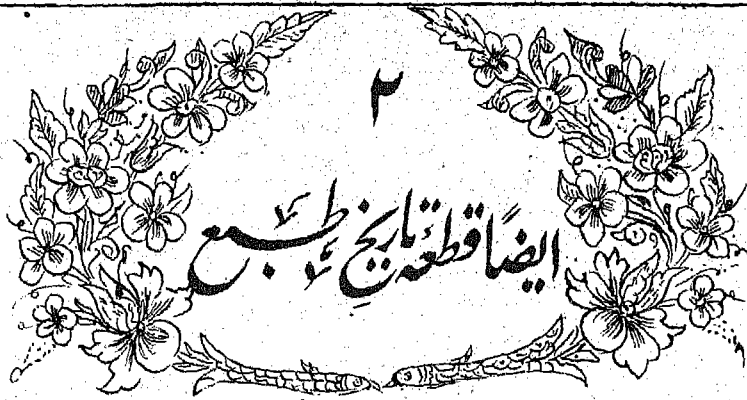 ۲
ایضاً قطعهٔ تاریخِ طبع